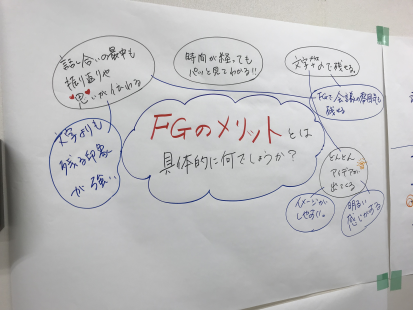 話し合いの最中も
振り返りや
思いがはかれる
時間が経っても
パッと見てわかる!!
文字+αで残せる。
会議の雰囲気も
残せる
文字よりも
残る印象
が強い
FGのメリットとは
具体的に何でしょうか?
どんどん
アイデアが
出てくる
イメージが
しやすい。
明るい
感じがする